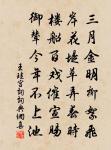 三月金明柳絮飛
岸花堤草弄春時
樓船百戲催宣賜
御輦今年不上池
王珪宮詞詞典網集